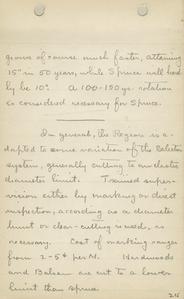 grows of course much faster, attaining
15" in 50 years, while Spruce will hard-
ly be 10". A 100-120 yr. rotation
is considered necessary for Spruce.
In general, the Region is a-
dapted to some variation of the Selection
system, generally cutting to an elastic
diameter limit. Trained super-
vision either by marking or direct
inspection, according as a diameter
limit or clear-cutting is used, is
necessary. Cost of marking ranges
from 2-5¢ per M. Hardwoods
and Balsam are cut to a lower
limit than spruce.